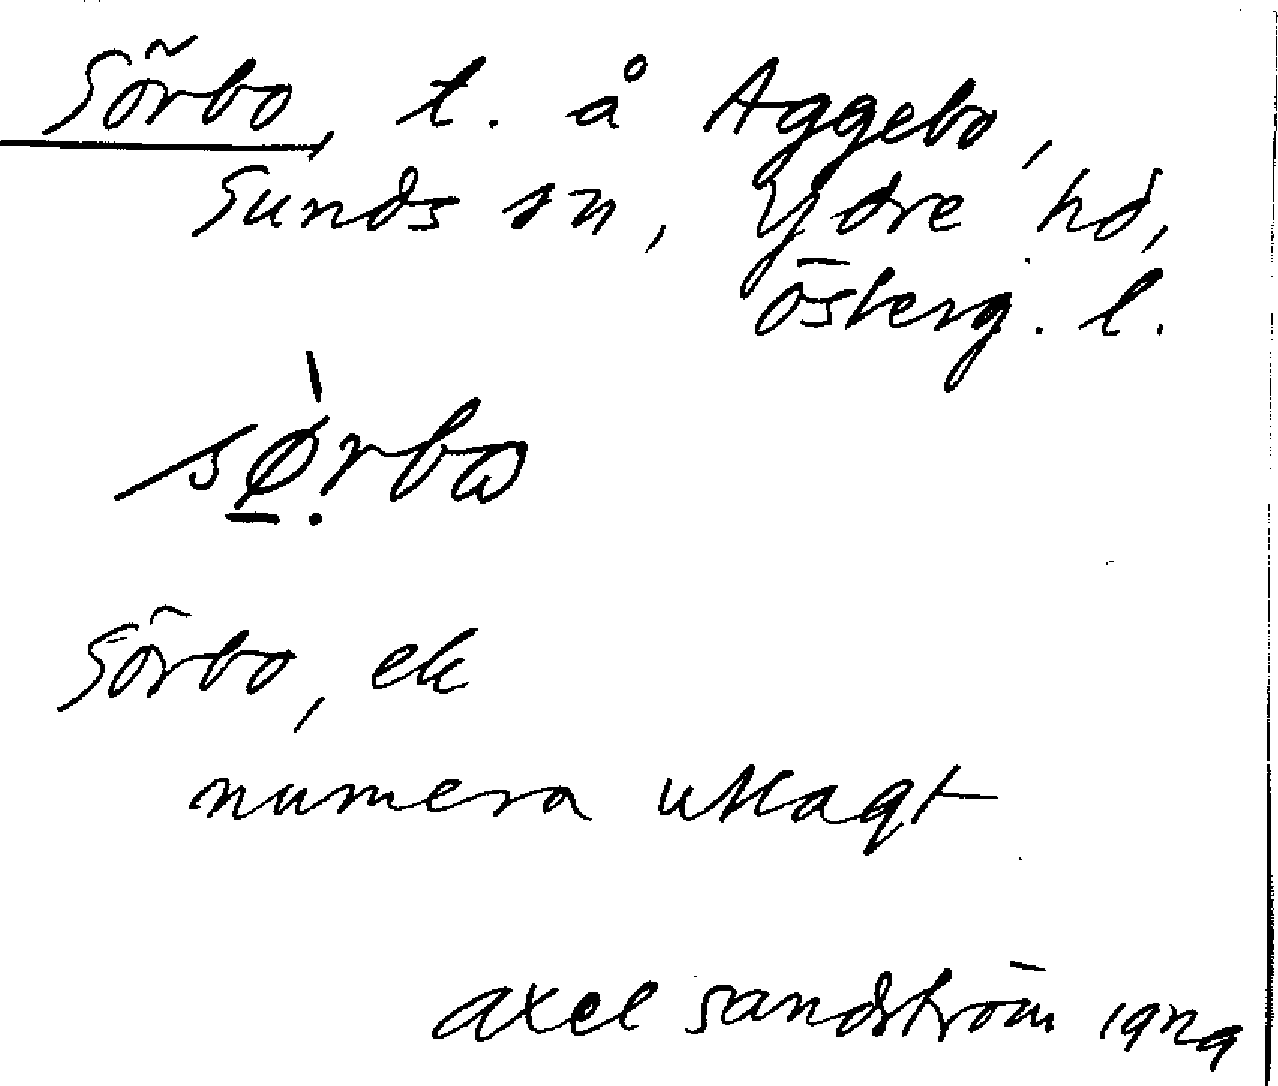 Sörbo, t. å Aggebo,
Sunds sn, Ydre hd,
Österg. l.
sø̠̀ṛbω
Sörbo, ek
numera utlagt
Axel Sandström 1929